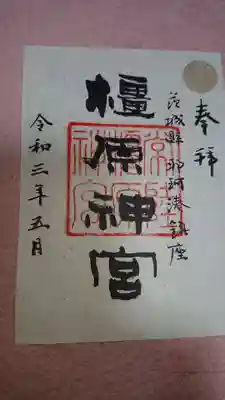 奉拝
茨城縣 那珂湊鎮座
橿原神宮
令和三年五月